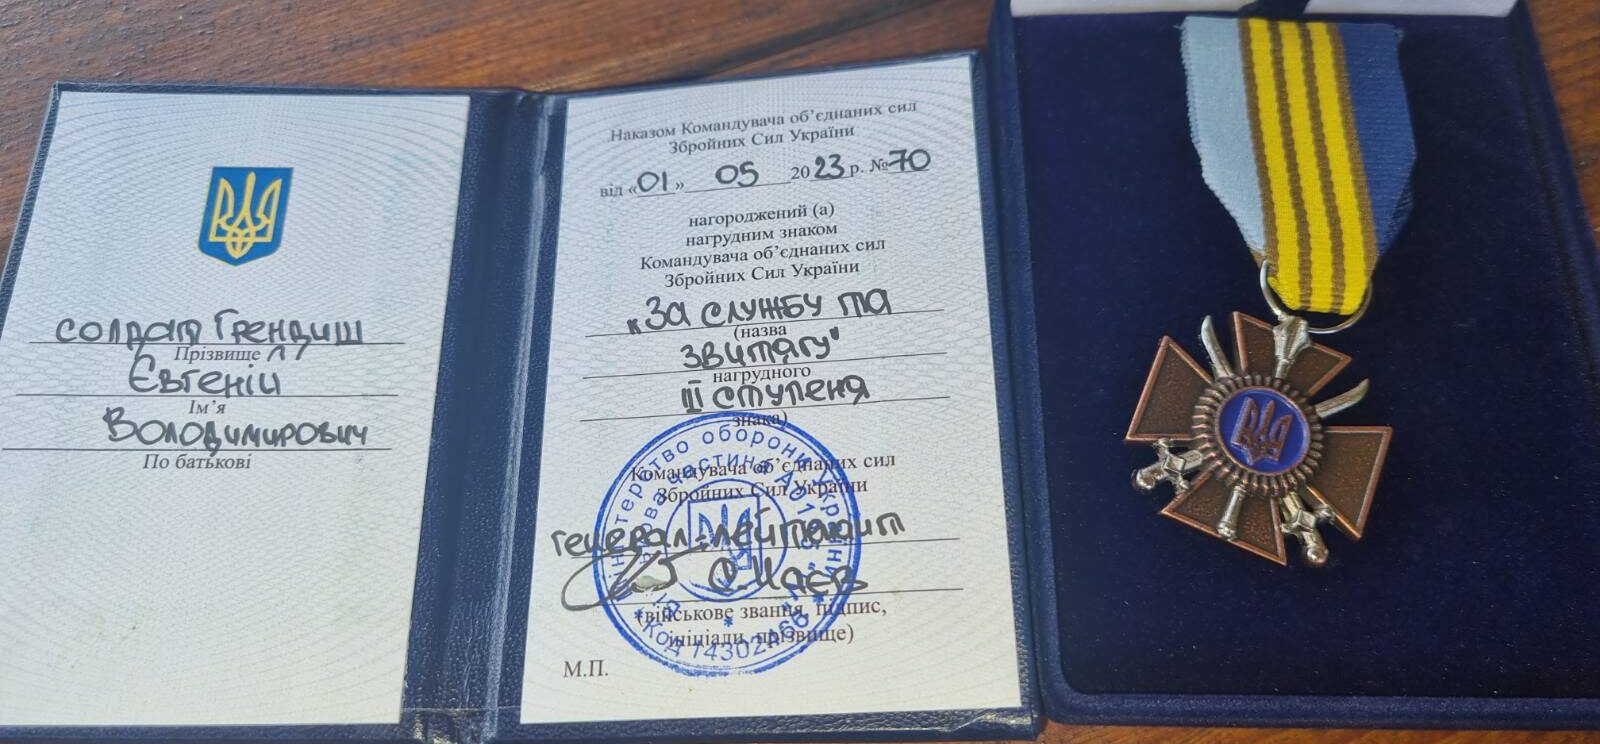 солдат Грендиш
Прізвище
Євгеній
Ім'я
Володимирович
По батькові
Наказом Командувача об'єднаних сил
Збройних Сил України
від «01» 05 2023 р. №70
нагороджений (а)
нагрудним знаком
Командувача об'єднаних сил
Збройних Сил України
"За службу та
(назва
звитягу"
нагрудного
III ступеня
знака)
Командувача об'єднаних сил
Збройних Сил України
генерал-лейтенант
С. Наєв
(військове звання, підпис,
ініціали, прізвище)
М.П.
Міністерство оборони України
Код